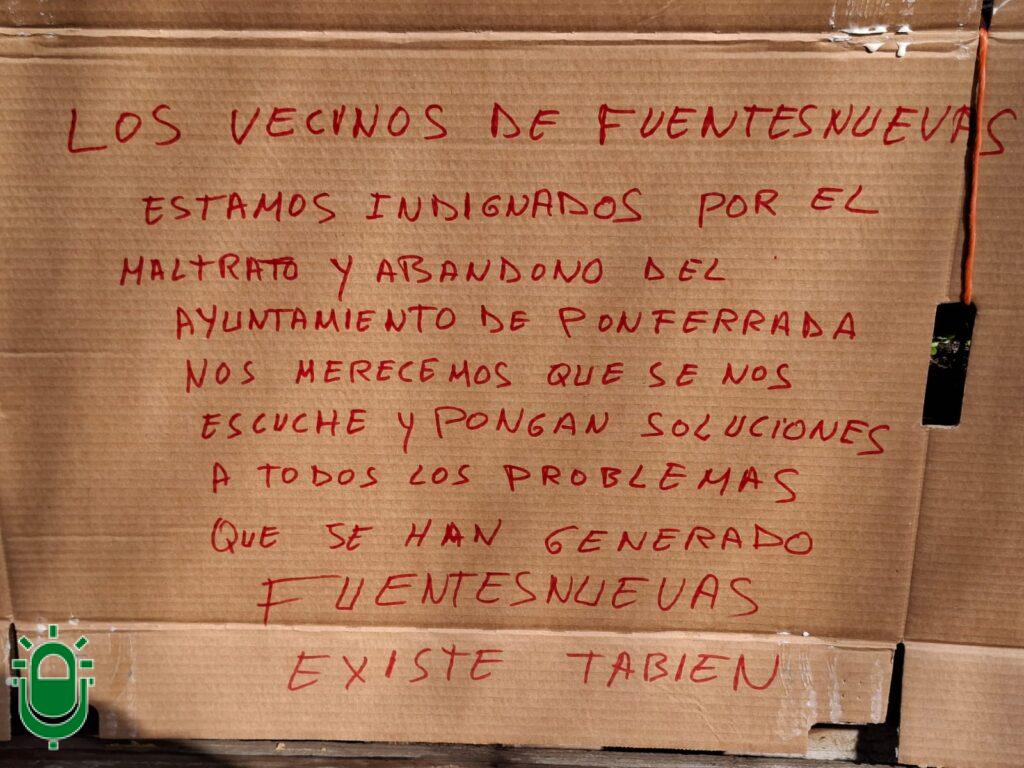 LOS VECINOS DE FUENTESNUEVAS
ESTAMOS INDIGNADOS POR EL
MALTRATO Y ABANDONO DEL
AYUNTAMIENTO DE PONFERRADA
NOS MERECEMOS QUE SE NOS
ESCUCHE Y PONGAN SOLUCIONES
A TODOS LOS PROBLEMAS
QUE SE HAN GENERADO
FUENTESNUEVAS
EXISTE TABIEN